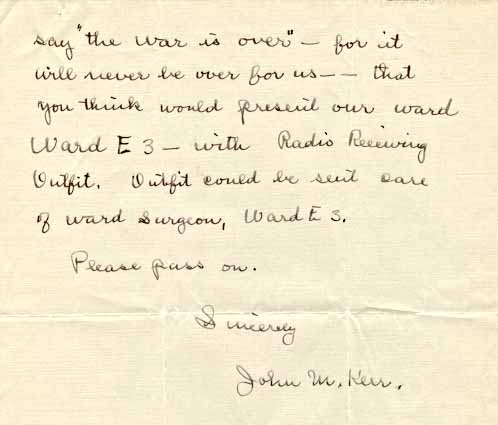 say "the war is over" – for it
will never be over for us – – that
you think would present our ward
Ward E 3 – with Radio Receiving
Outfit. Outfit could be sent care
of ward surgeon, Ward E 3.
Please pass on.
Sincerely
John M. Kerr.